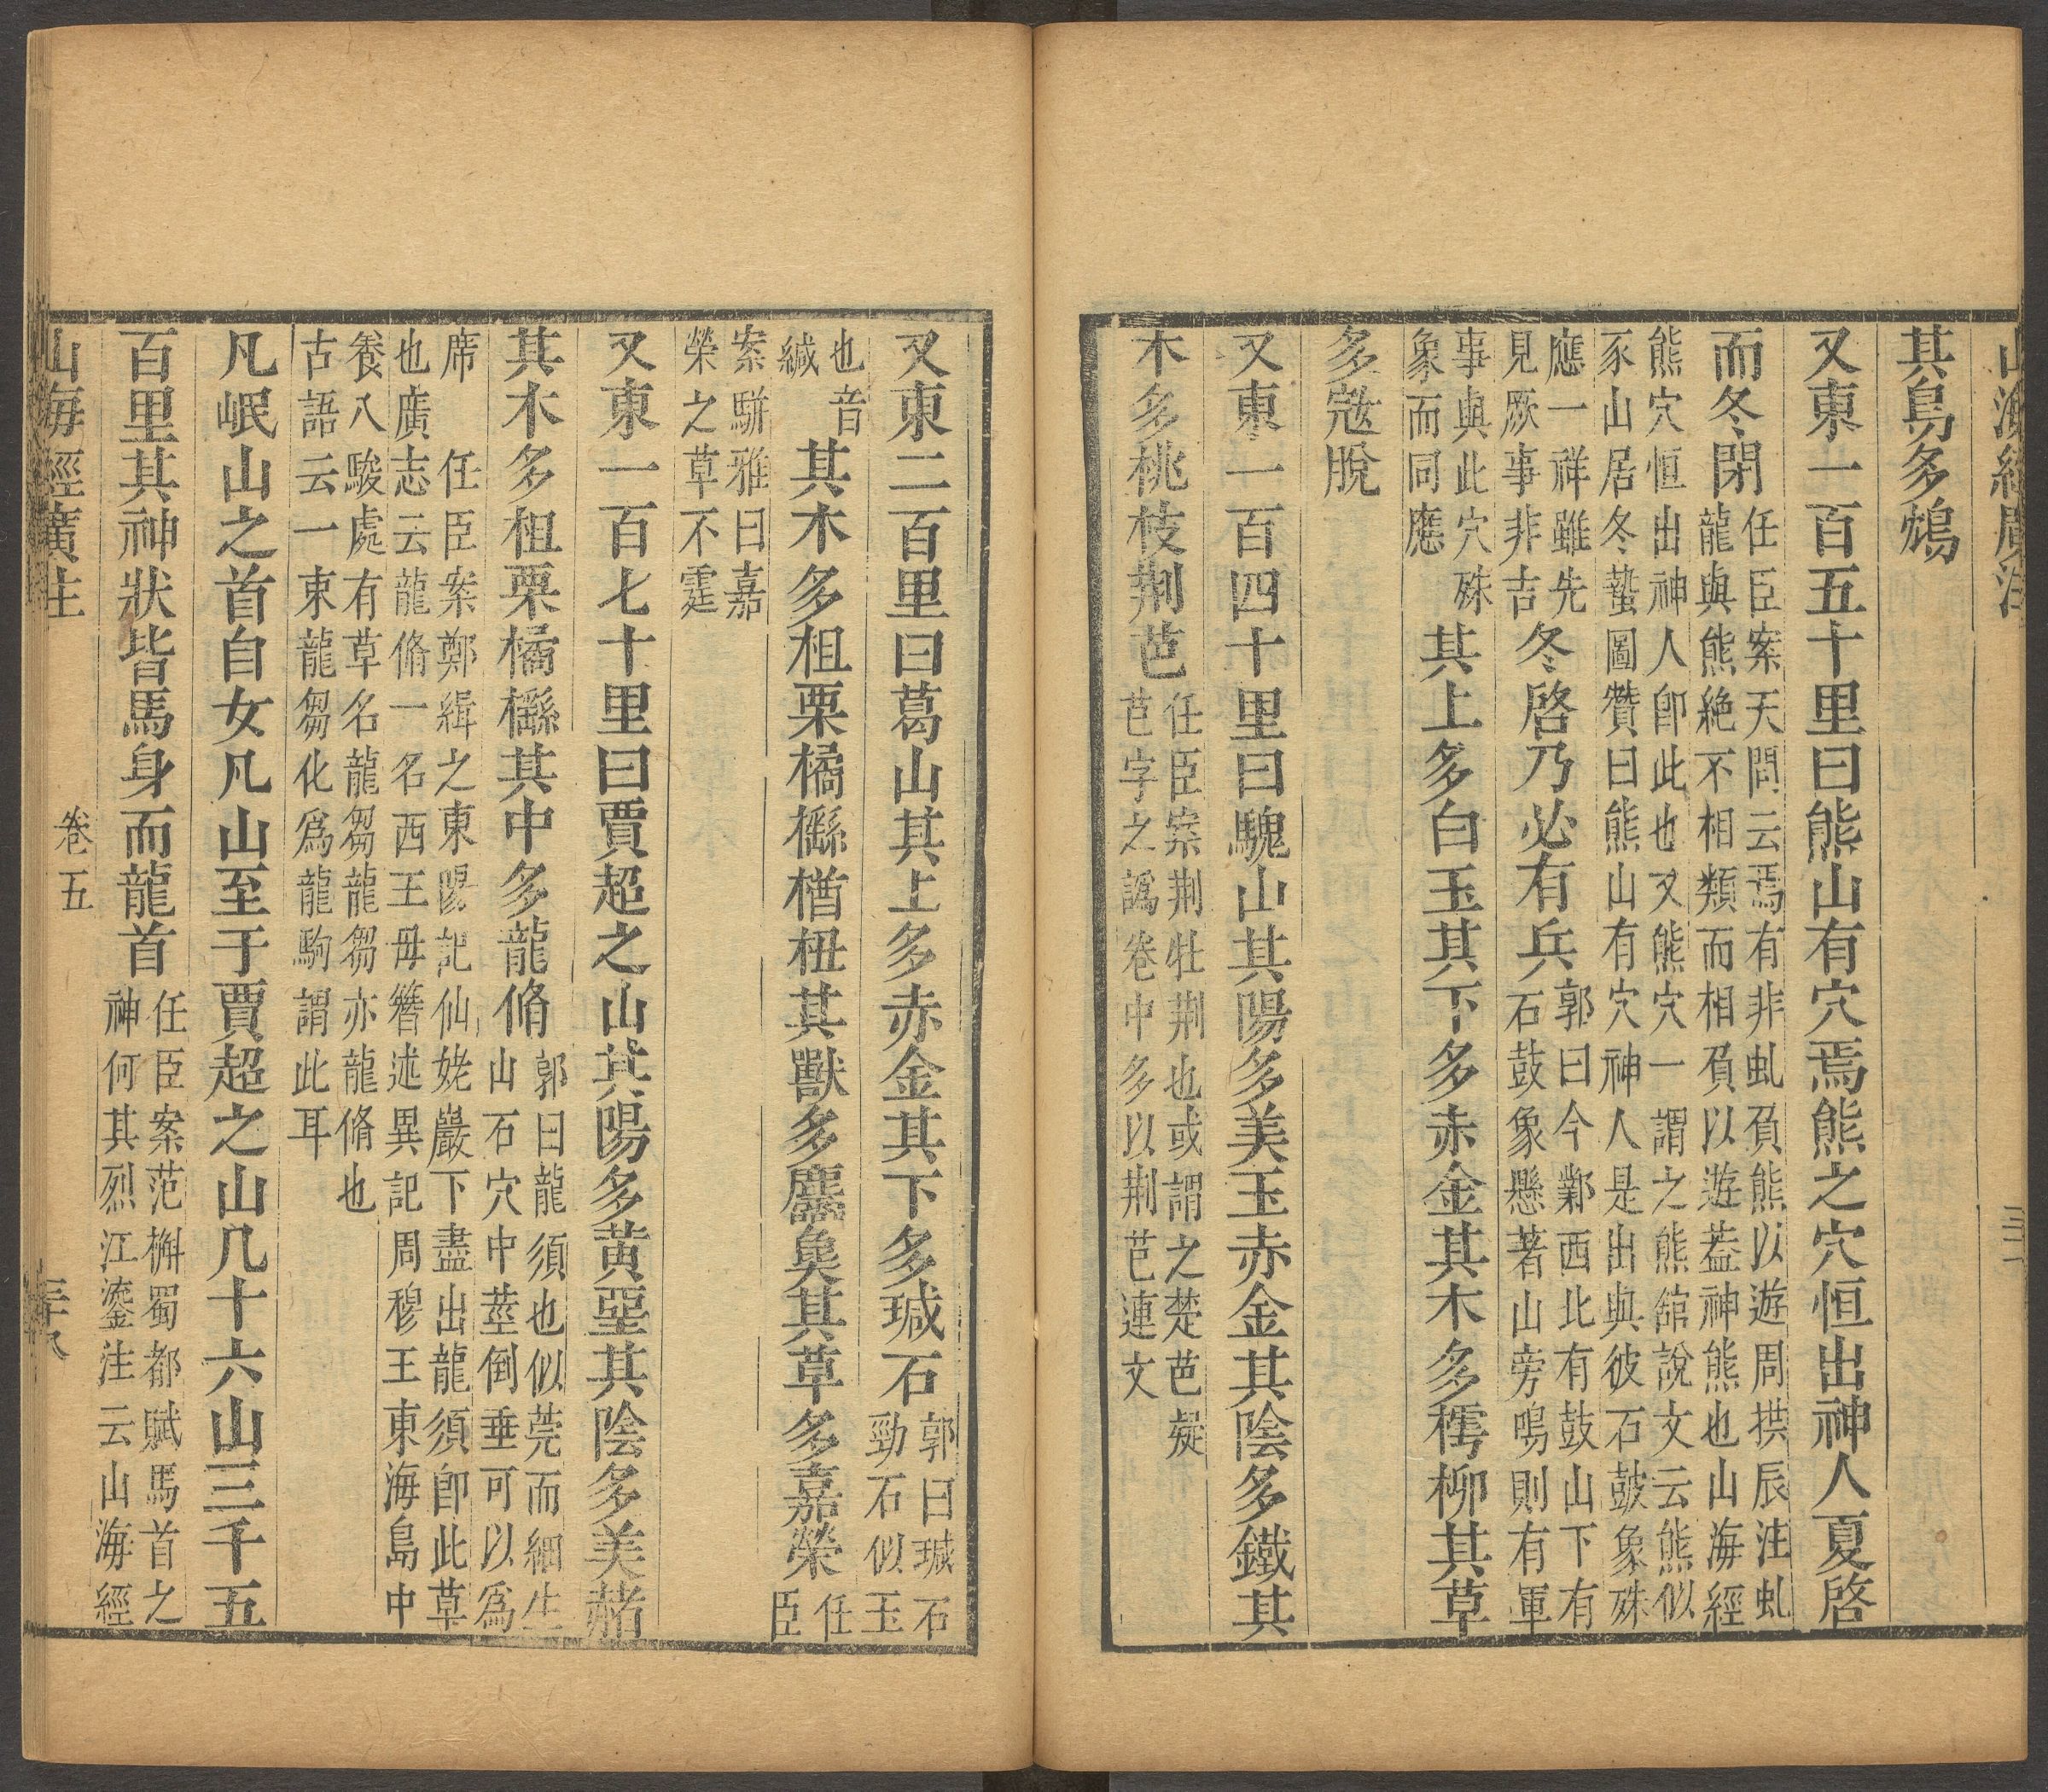 山海經廣注
其鳥多鴆
又東一百五十里曰熊山有穴焉熊之穴恒出神人夏啓
而冬閉
任臣案天問云焉有非虬負熊以遊周拱辰注虬
龍與熊絶不相類而相負以遊葢神熊也山海經
熊穴恒出神人卽此也又熊穴一謂之熊舘說文云熊似
豕山居冬蟄圖贊曰熊山有穴神人是出與彼石鼓象殊
應一祥雖先
見厥事非吉
冬啓乃必有兵
郭曰今鄴西北有鼓山下有
石鼓象懸著山旁鳴則有軍
事與此穴殊
象而同應
其上多白玉其下多赤金其木多樗柳其草
多寇脫
又東一百四十里曰騩山其陽多美玉赤金其陰多鐵其
木多桃枝荆芭
任臣案荆牡荆也或謂之楚芭疑
芑字之譌卷中多以荆芑連文
又東二百里曰葛山其上多赤金其下多瑊石
郭曰瑊石
勁石似玉
也音
緘
其木多柤栗橘櫾楢杻其獸多麢㚟其草多嘉榮
任
臣
案駢雅曰嘉
榮之草不霆
又東一百七十里曰賈超之山其陽多黄堊其陰多美赭
其木多柤栗橘櫾其中多龍脩
郭曰龍須也似莞而細生
山石穴中莖倒垂可以爲
席　任臣案鄭緝之東陽記仙姥巖下盡出龍須卽此草
也廣志云龍脩一名西王毋簪述異記周穆王東海島中
養八駿處有草名龍芻龍芻亦龍脩也
古語云一束龍芻化爲龍駒謂此耳
凡岷山之首自女几山至于賈超之山凡十六山三千五
百里其神狀皆馬身而龍首
任臣案范槲蜀都賦馬首之
神何其烈江鎏注云山海經
山海經廣注　卷五　三十八